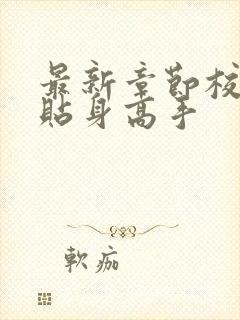 最新章節校
貼身高手
軟痂